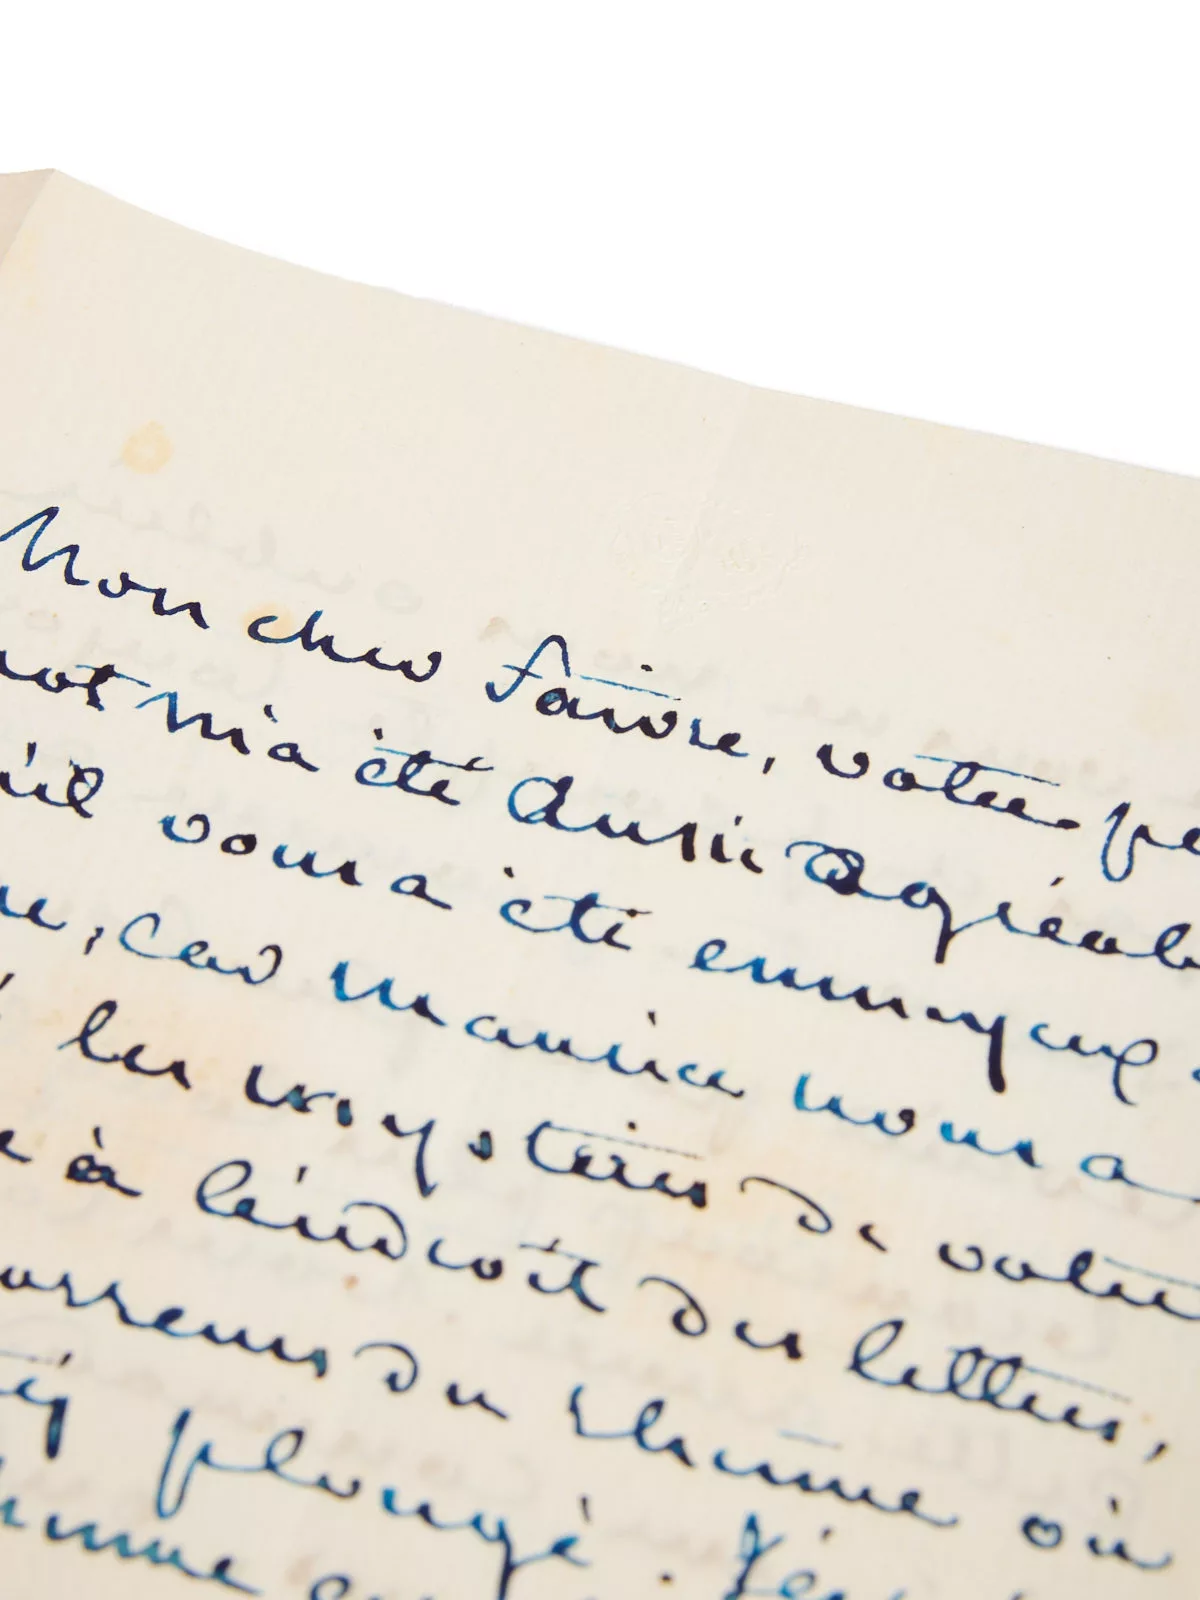 Mon cher Faivre, votre pe
mot m'a été aussi agréab
u'il vous a été ennuyeux
re, car Maurice nous a
les mystères de votre
e à l'endroit des lettres,
orreurs du rhume où
plongé.